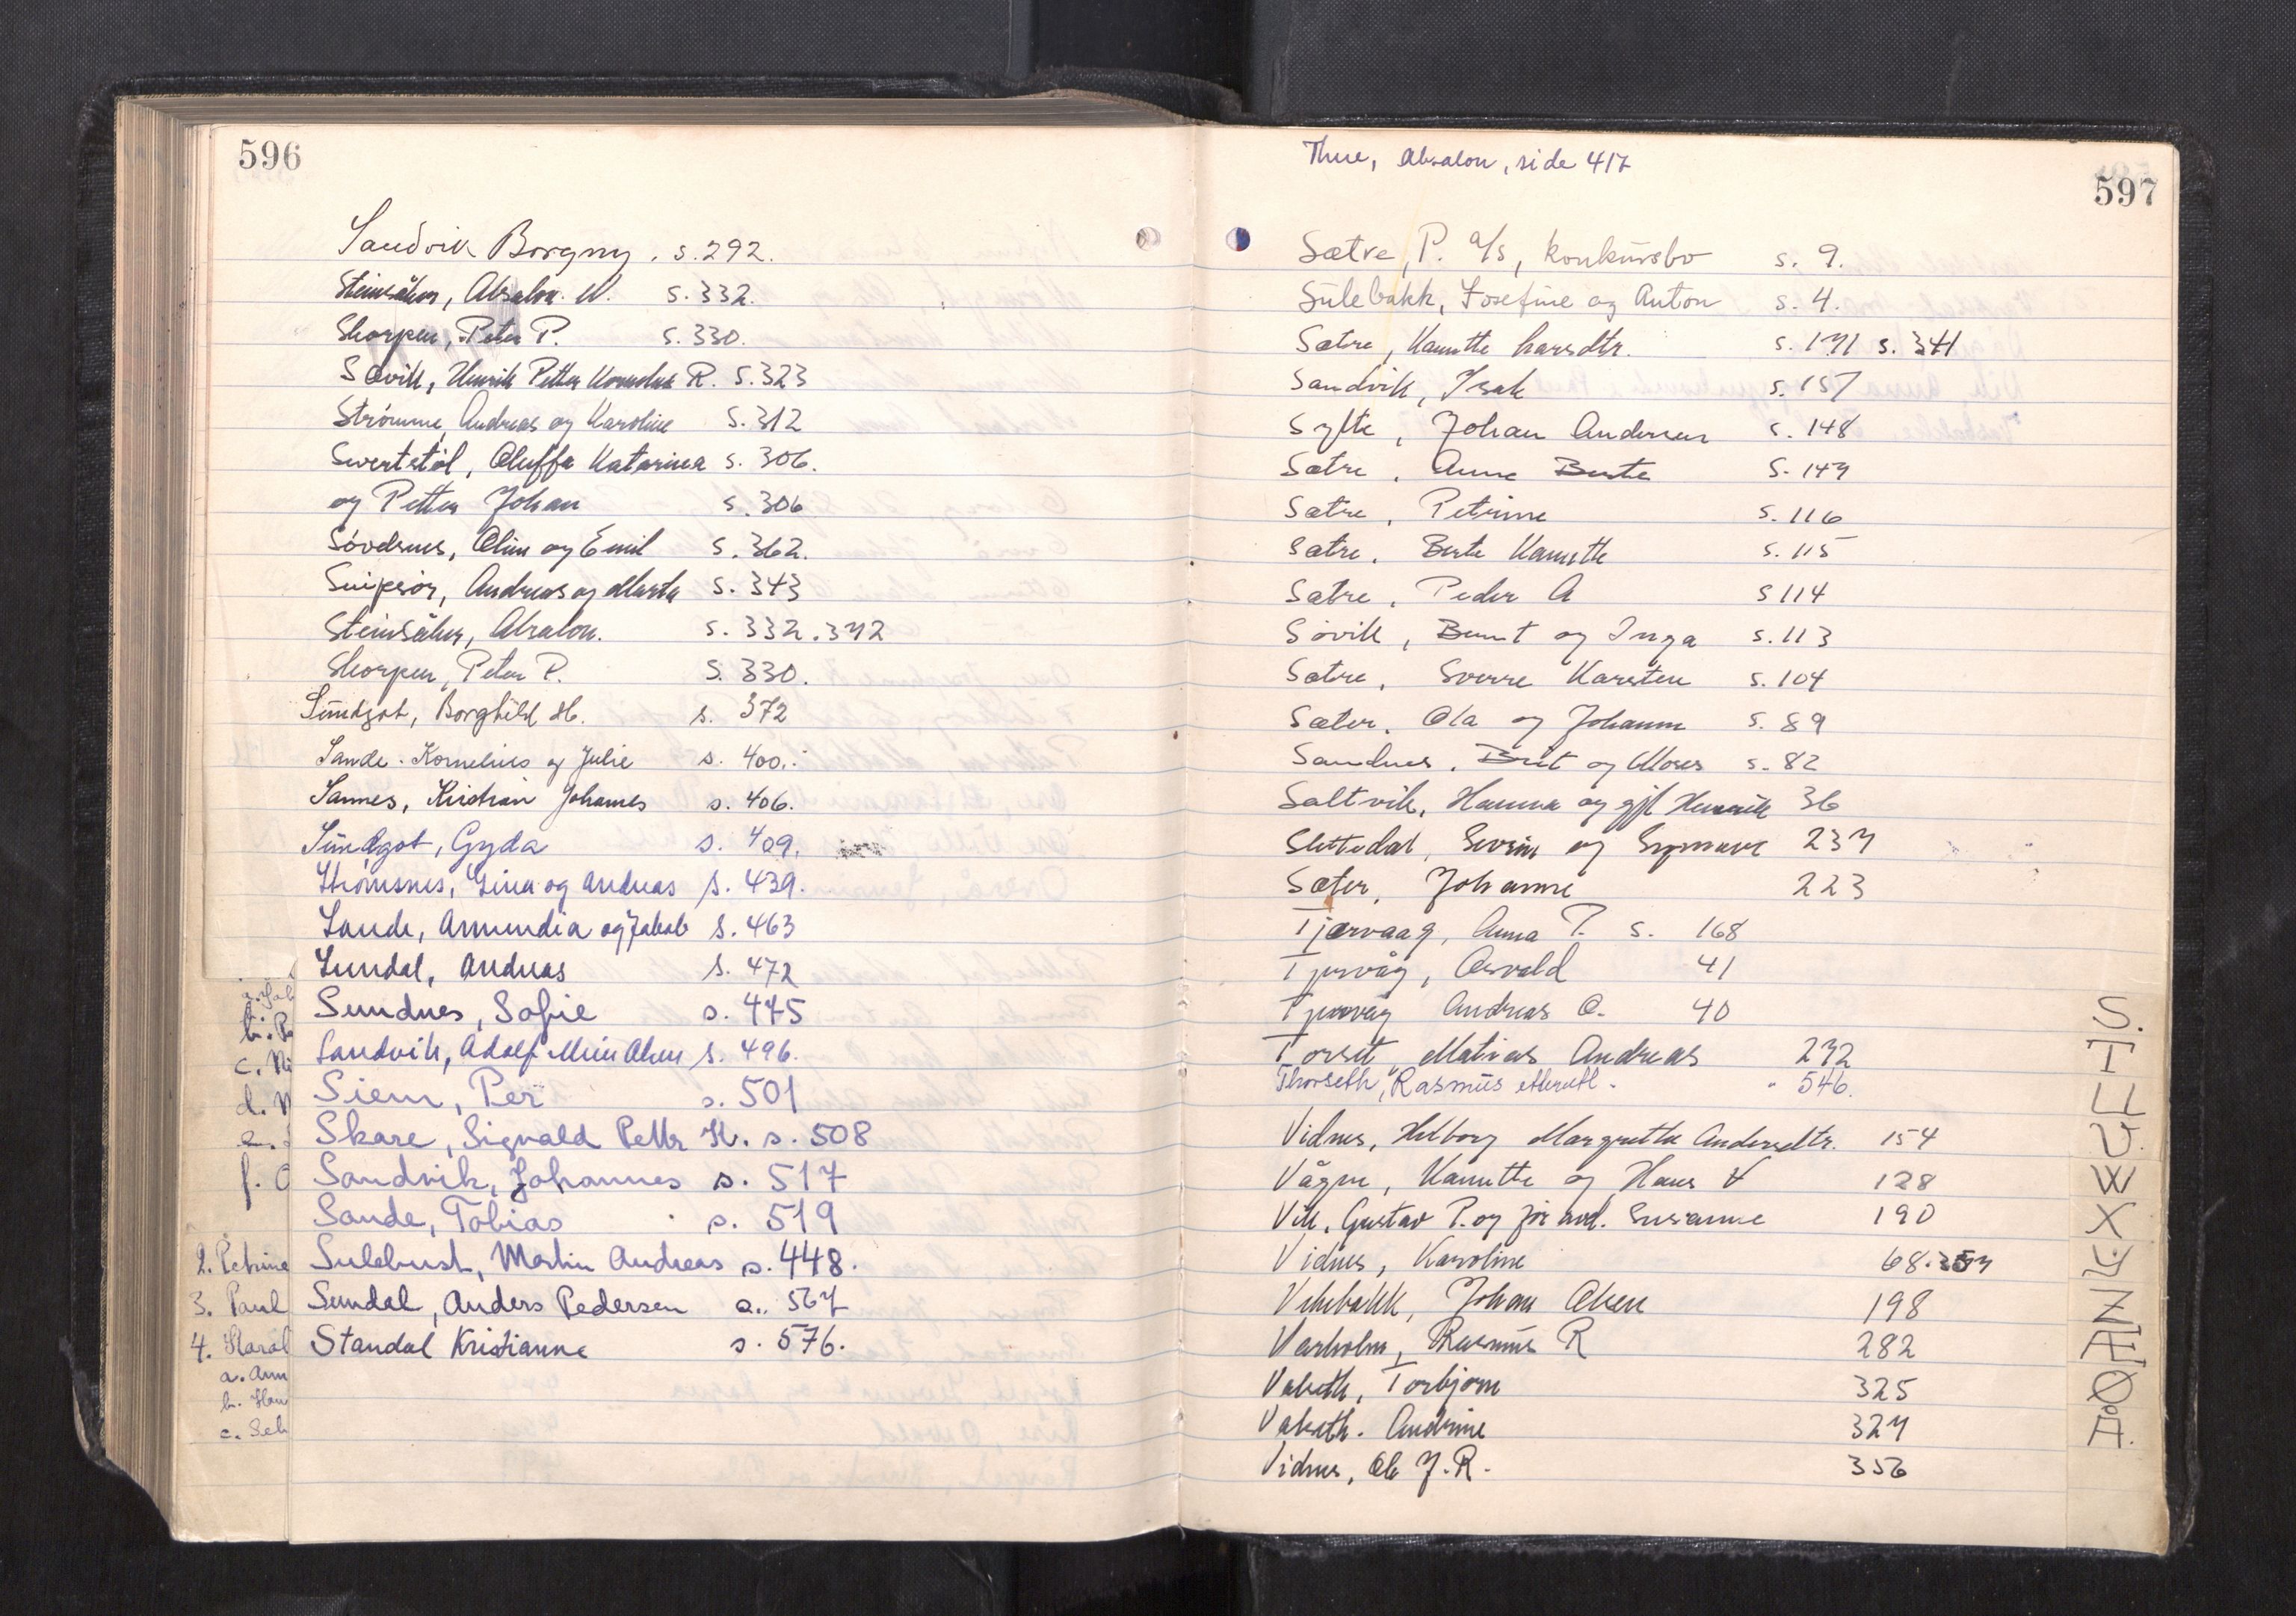 596
Sandvik Borgny. s. 292.
Steinsåker, Absalon. N. s. 332.
Skorpen, Peter P. s. 330.
Søvik, Henrik Petter Kornelius R. s. 323
Strømme, Andreas og Karoline s. 312
Sivertstøl, Oluffa Katarina s. 306.
og Petter Johan s. 306
Søvdsnes, Oline og Emil s. 362.
Snipsør, Andreas og Marta s. 343
Steinsåker, Absalon. s. 332. 342
Skorpen, Peter P. s. 330.
Sundgot, Borghild s. 372
Sande. Kornelius og Julie s. 400.
Sannes, Kristian Johannes s. 406.
Sundgot, Gyda s. 409.
Strømsnes, Lina og Andreas s. 439.
Sande, Amundia og Jakob s. 463
Sundal, Andreas s. 472
Sundnes, Sofie s. 475
Sandvik, Adolf s. 496.
Siem, Per s. 501
Skare, Sigvald Petter K. s. 508
Sandvik, Johannes s. 517
Sande, Tobias s. 519
Sulebust, Martin Andreas s. 448.
Sundal, Anders Pedersen s. 567
Standal Kristianne s. 576.
b. Pe
c. Ni
f. O
2. Petrine
3. Paul
4. Karol
a. Ann
b. Han
Thue, Absalon, side 417
597
Sætre, P. A/S, konkursbo s. 9.
Sulebakk, Josefine og Anton s. 4.
Sætre, Kanutte Larsdtr. s. 171 s. 341
Sandvik, Isak s. 157
Sylte, Johan Andersen s. 148
Sætre, Anne Berte s. 147
Sætre, Petrine s. 116
Sætre, Berte Kanutte s. 115
Sætre, Peder A s 114
Søvik, Bernt og Inga s. 113
Sætre, Sverre Karsten s. 104
Sæter, Ola og Johanne s. 89
Sandnes, Brit og Moses s. 82
Saltvik, Hanna og gjl Henrik 36
Slettedal, Sevrin og Synnøve 237
Sæter, Johanne 223
Tjørvaag, Anna P. s. 168
Tjørvåg, Osvald 41
Tjørvåg Andreas O. 40
Torset, Matias Andreas 232
Thorseth, Rasmus etterætl. " 546.
Vidnes, Helborg Margrethe Andersdtr. 154
Vågen, Kanutte og Hans V 128
Vik, Gustav P. og før avd. Susanne 190
Vidnes, Karoline 68. 357
Velebakk, Johan Olsen 198
Varholm, Rasmus R 282
Vakseth, Torbjørn 325
Vakseth. Andrine 327
Vidnes, Ole J. R. 356
S. T. U. V. X. Y. Z. Æ. Ø. Å.